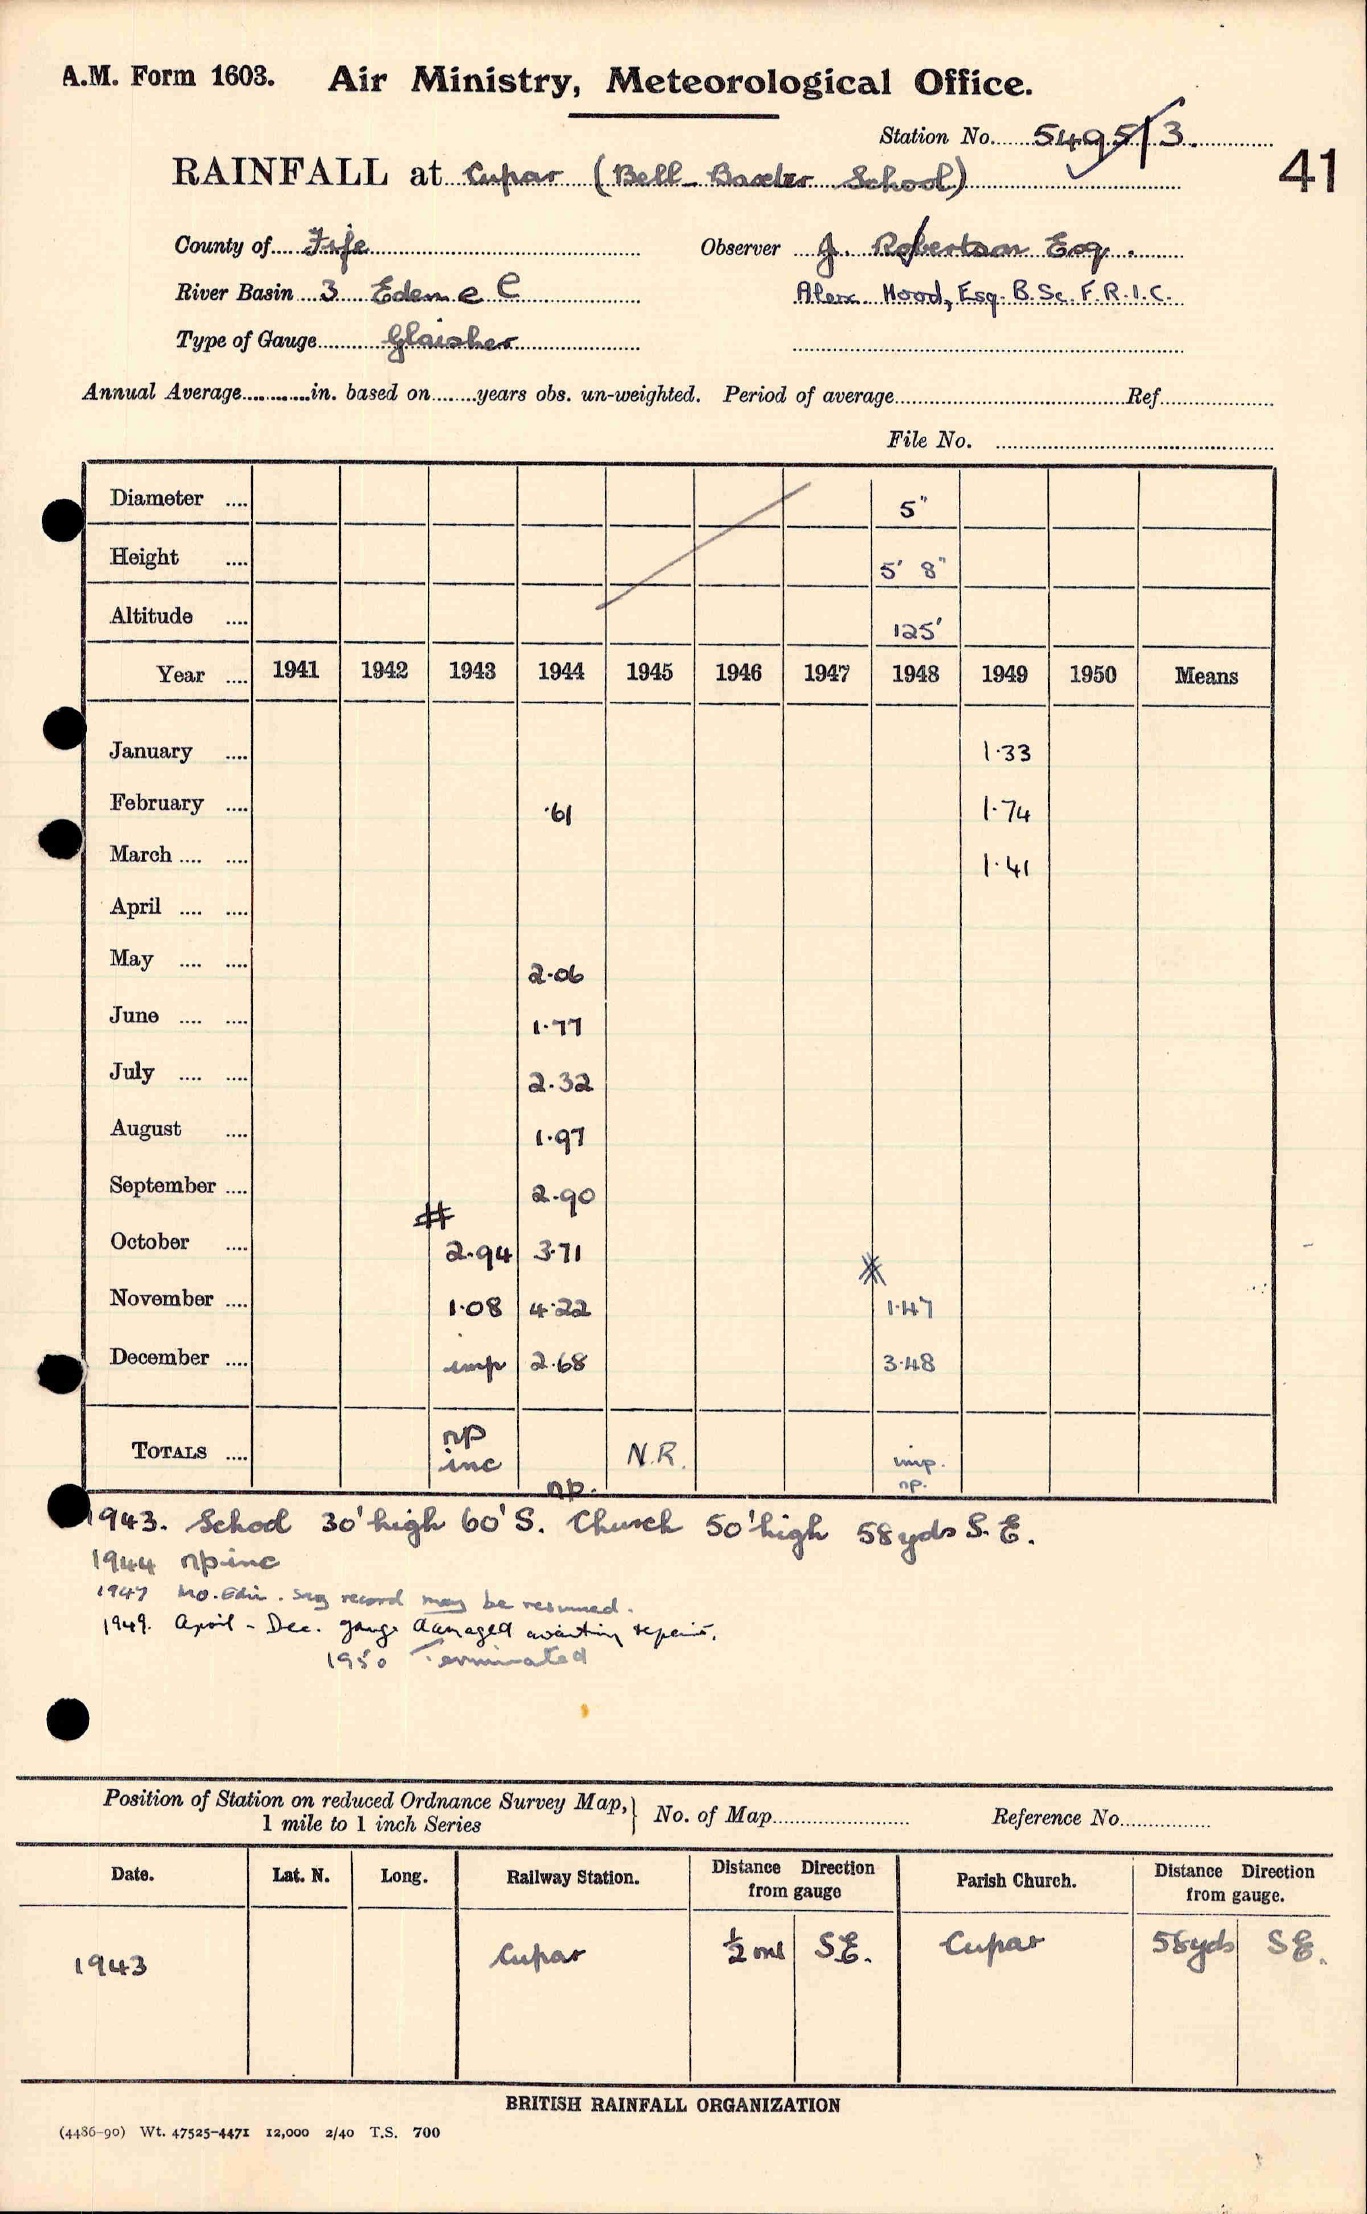 A.M. Form 1603. Air Ministry, Meteorological Office.
Station No. 5495/3.
41
RAINFALL at Cupar (Bell-Baxter School)
County of Fife Observer J. Robertson Esq.
River Basin 3 Eden e C Alex. Hood, Esq. B.Sc. F.R.I.C.
Type of Gauge Glaisher
Annual Average in. based on years obs. un-weighted. Period of average Ref.
File No.
Diameter 5"
Height 5' 8"
Altitude 125'
Year 1941 1942 1943 1944 1945 1946 1947 1948 1949 1950 Means
January 1.33
February .61 1.74
March 1.41
April
May 2.06
June 1.77
July 2.32
August 1.97
September 2.90
October 2.94 3.71
November 1.08 4.22 1.47
December imp 2.68 3.48
TOTALS np inc np. N.R. imp. np.
1943. School 30' high 60' S. Church 50' high 58yds S.E.
1944 np inc
1947 Mo. Edin. say record may be resumed.
1949. April - Dec. gauge damaged awaiting repairs.
1950 Terminated
Position of Station on reduced Ordnance Survey Map, 1 mile to 1 inch Series } No. of Map Reference No.
Date. Lat. N. Long. Railway Station. Distance Direction from gauge Parish Church. Distance Direction from gauge.
1943 Cupar ½ ml S.E. Cupar 58yds S.E.
BRITISH RAINFALL ORGANIZATION
(4486-90) Wt. 47525-4471 12,000 2/40 T.S. 700